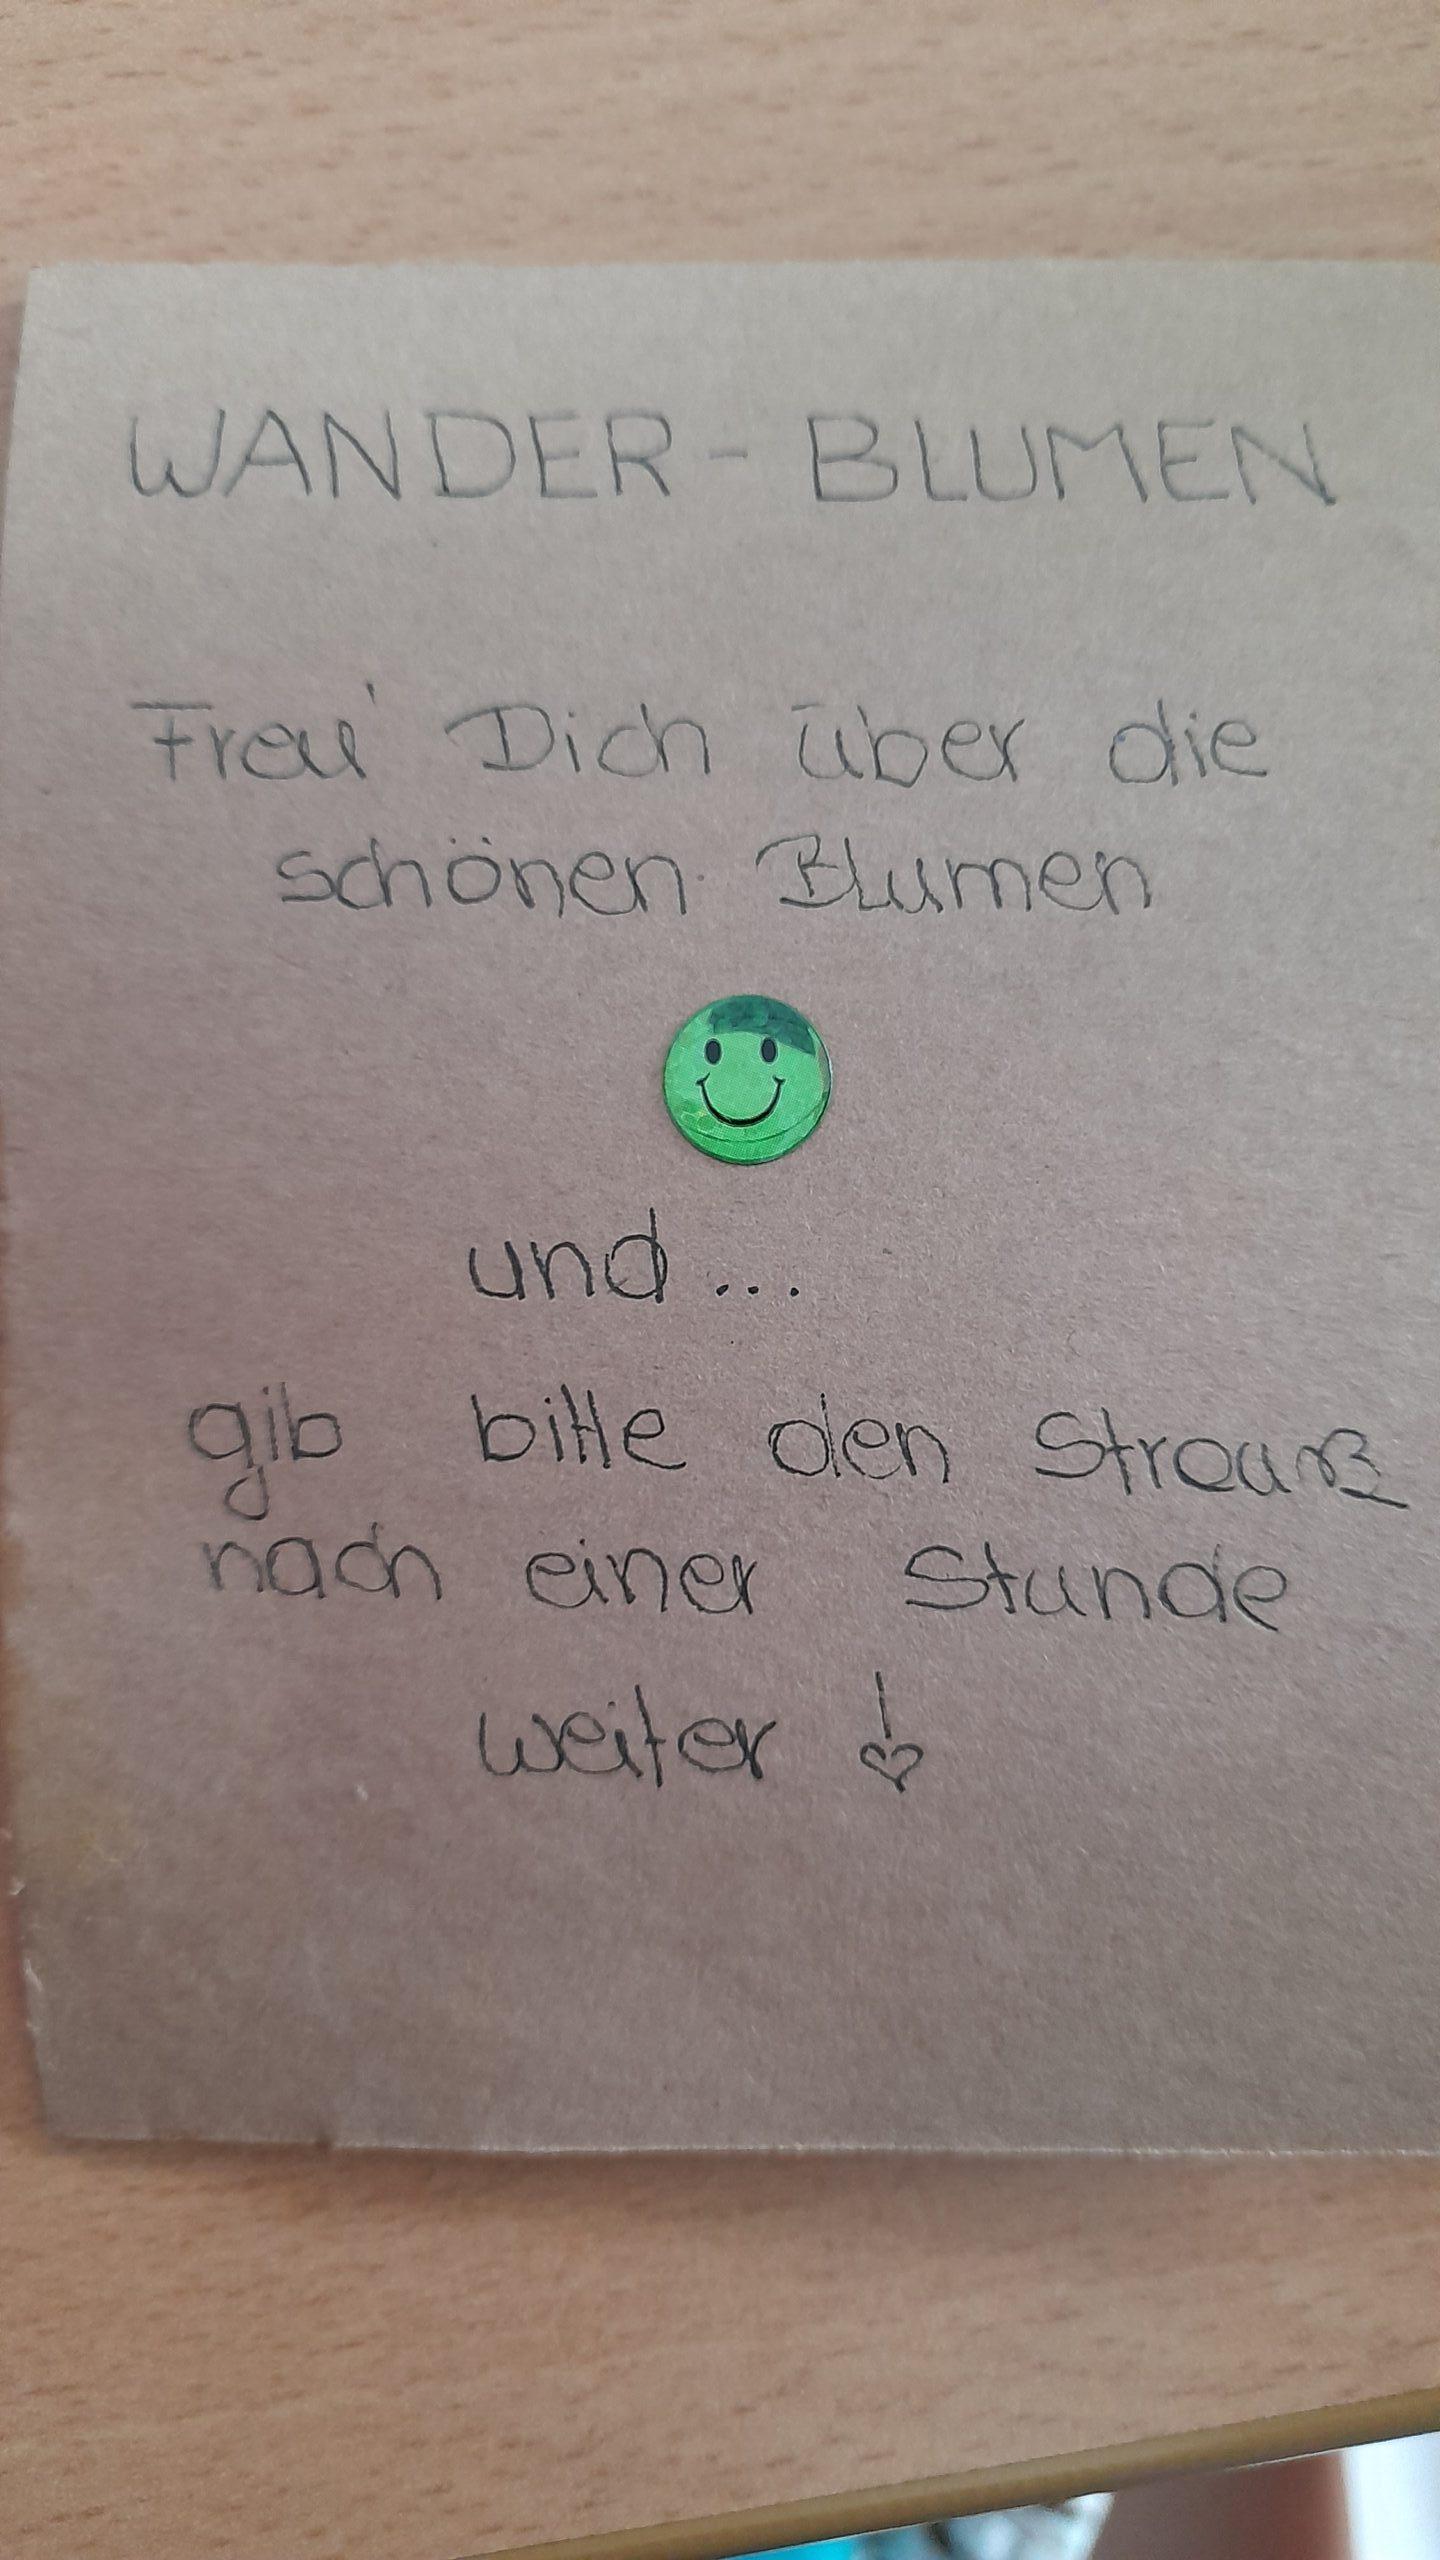 WANDER - BLUMEN
Freu' Dich über die
schönen Blumen
und...
gib bitte den Strauß
nach einer Stunde
weiter !